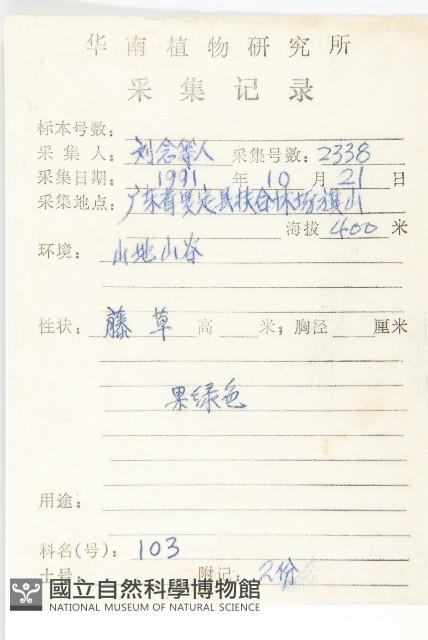 华南植物研究所
采集记录
标本号数：
采集人：刘念等人 采集号数：2338
采集日期：1991 年 10 月 21 日
采集地点：广东省 定县扶合林场旗山
海拔 400 米
环境：山地山谷
性状：藤草 高 米；胸径 厘米
果绿色
用途：
科名(号)：103
土号 附记：2份
國立自然科學博物館
NATIONAL MUSEUM OF NATURAL SCIENCE